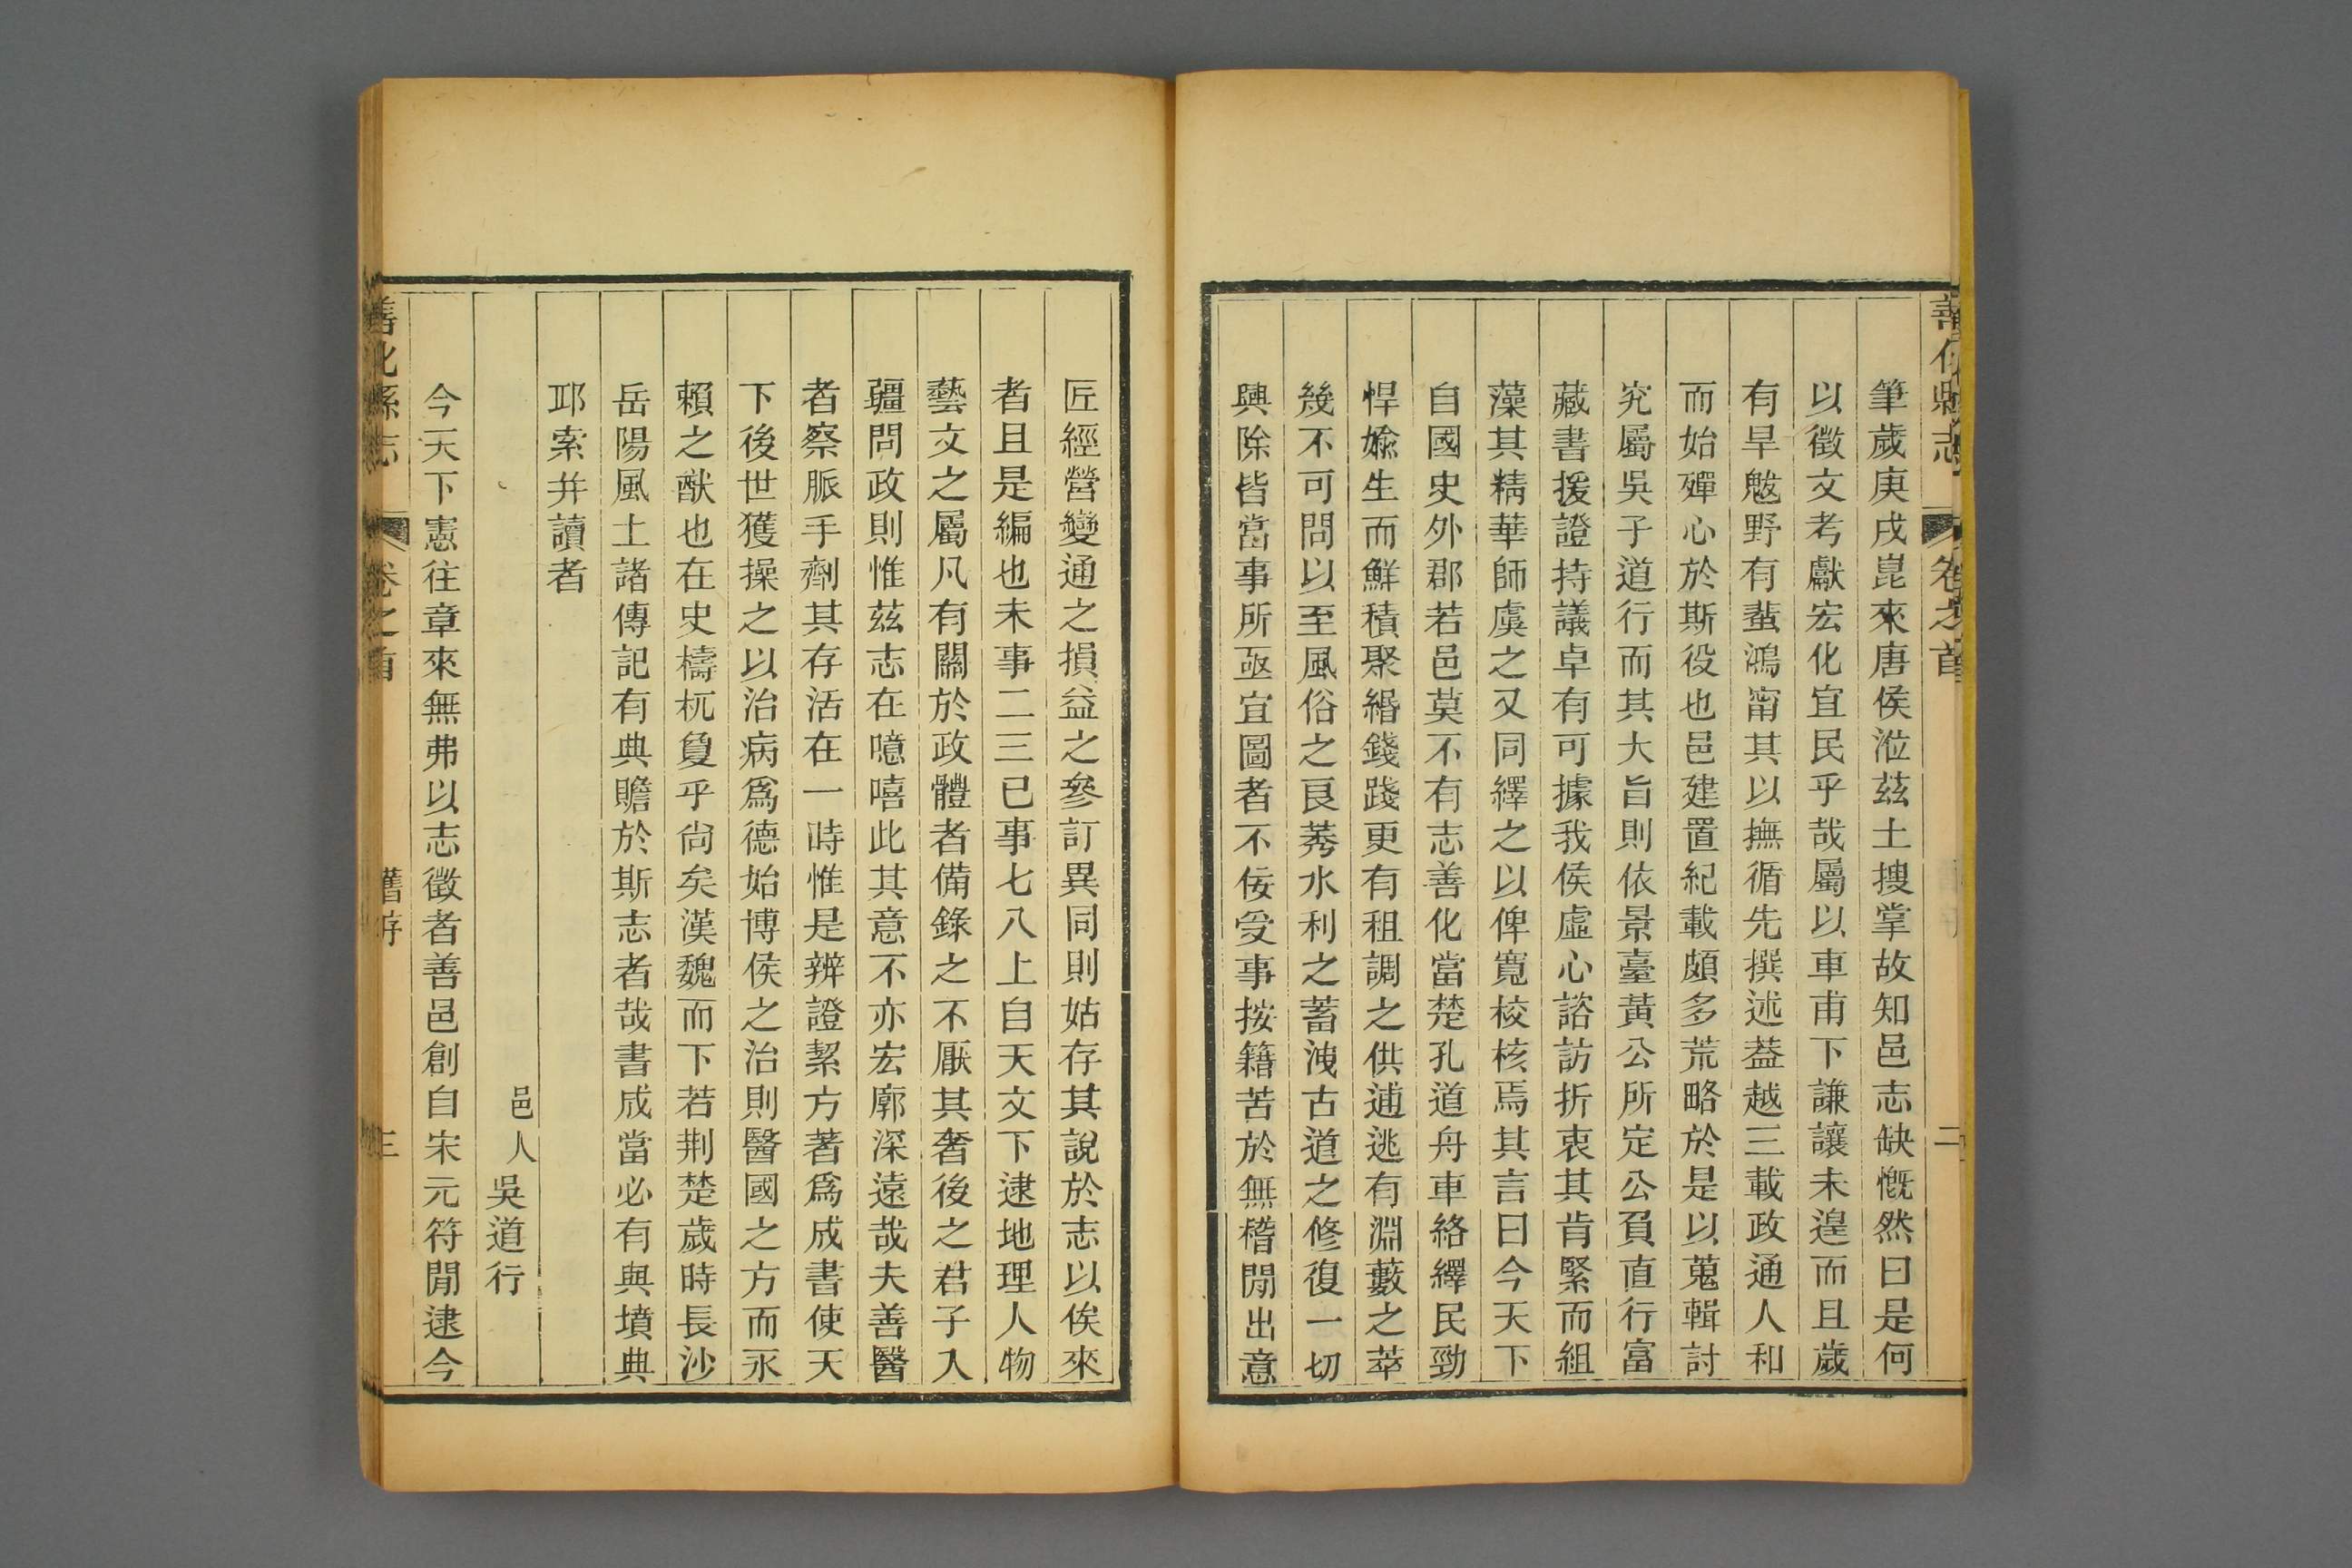 善化縣志
卷之首
二
筆歲庚戌崑來唐侯涖茲土搜掌故知邑志缺慨然曰是何
以徵文考獻宏化宜民乎哉屬以車甫下謙讓未遑而且歲
有旱魃野有蜚鴻甯其以撫循先撰述葢越三載政通人和
而始殫心於斯役也邑建置紀載頗多荒略於是以蒐輯討
究屬吳子道行而其大旨則依景臺黃公所定公負直行富
藏書援證持議卓有可據我侯虛心諮訪折衷其肯緊而組
藻其精華師虞之又同繹之以俾寬校核焉其言曰今天下
自國史外郡若邑莫不有志善化當楚孔道舟車絡繹民勁
悍媮生而鮮積聚緡錢踐更有租調之供逋逃有淵藪之萃
幾不可問以至風俗之良莠水利之蓄洩古道之修復一切
興除皆當事所亟宜圖者不佞受事按籍苦於無稽閒出意
匠經營變通之損益之參訂異同則姑存其說於志以俟來
者且是編也未事二三已事七八上自天文下逮地理人物
藝文之屬凡有關於政體者備錄之不厭其奢後之君子入
疆問政則惟茲志在噫嘻此其意不亦宏廓深遠哉夫善醫
者察脈手劑其存活在一時惟是辨證絜方著爲成書使天
下後世獲操之以治病爲德始博侯之治則醫國之方而永
賴之猷也在史檮杌敻乎尙矣漢魏而下若荆楚歲時長沙
岳陽風土諸傳記有典贍於斯志者哉書成當必有與墳典
邱索并讀者
邑人吳道行
今天下憲往章來無弗以志徵者善邑創自宋元符閒逮今
善化縣志
卷之首
舊序
三